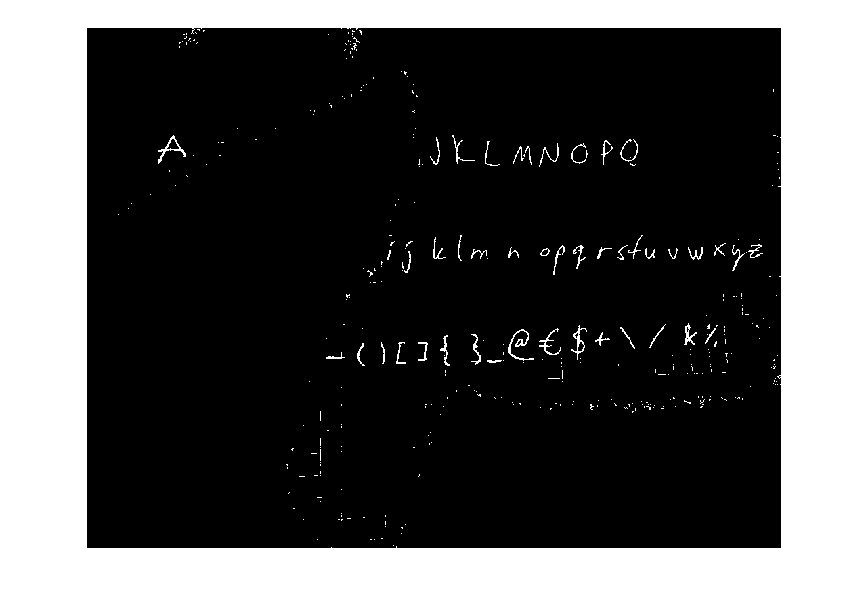 A JKLMNOPQ
ijklmnopqrstuvwxyz
-()[]{}_@€$+\/&%